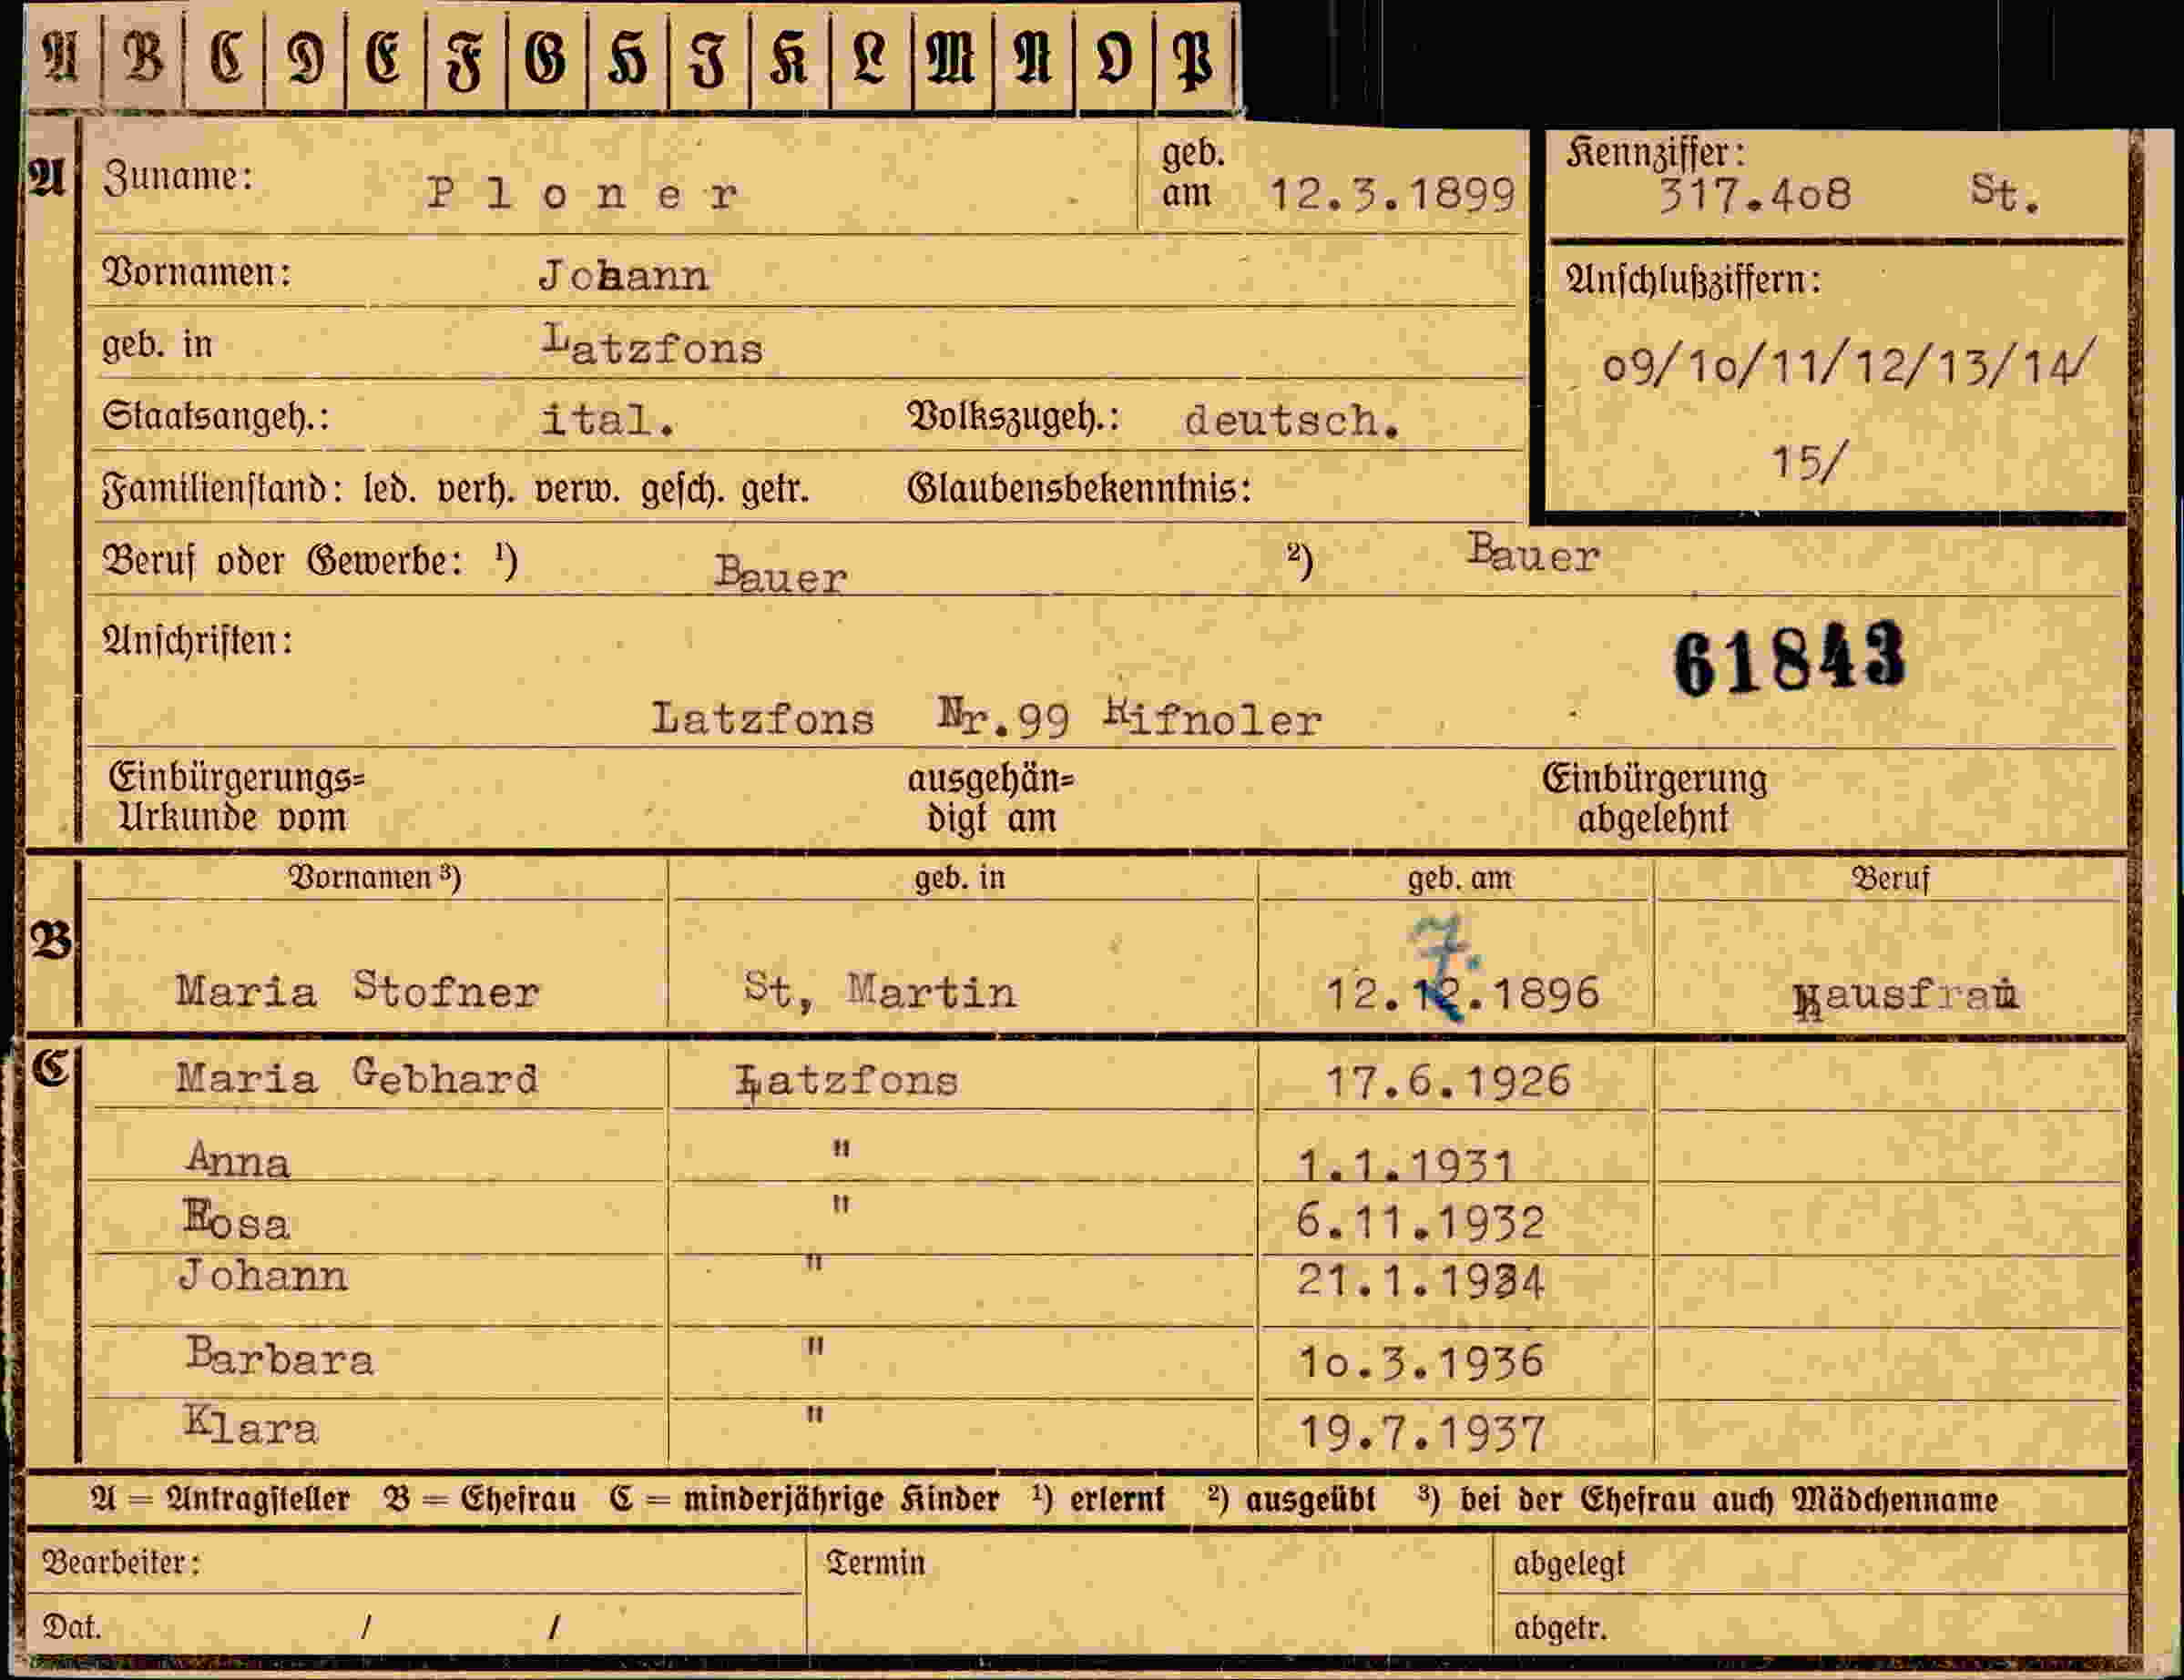 A B C D E F G H I K L M N O P
A Zuname: Ploner geb. am 12.3.1899 Kennziffer: 317.4o8 St.
Vornamen: Johann Anschlußziffern:
geb. in Latzfons o9/1o/11/12/13/14/
Staatsangeh.: ital. Volkszugeh.: deutsch. 15/
Familienstand: led. verh. verw. gesch. getr. Glaubensbekenntnis:
Beruf oder Gewerbe: ¹) Bauer ²) Bauer
Anschriften: 61843
Latzfons Nr.99 Kifnoler
Einbürgerungs= ausgehän= Einbürgerung
Urkunde vom digt am abgelehnt
Vornamen ³) geb. in geb. am Beruf
B 7.
Maria Stofner St, Martin 12.12.1896 Hausfrau
C Maria Gebhard Latzfons 17.6.1926
Anna " 1.1.1931
Rosa " 6.11.1932
Johann " 21.1.1934
Barbara " 1o.3.1936
Klara " 19.7.1937
A = Antragsteller B = Ehefrau C = minderjährige Kinder ¹) erlernt ²) ausgeübt ³) bei der Ehefrau auch Mädchenname
Bearbeiter: Termin abgelegt
Dat. / / abgetr.